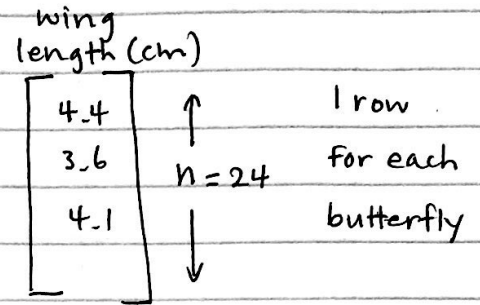 wing
length (cm)
4.4
3.6
4.1
n = 24
1 row
for each
butterfly